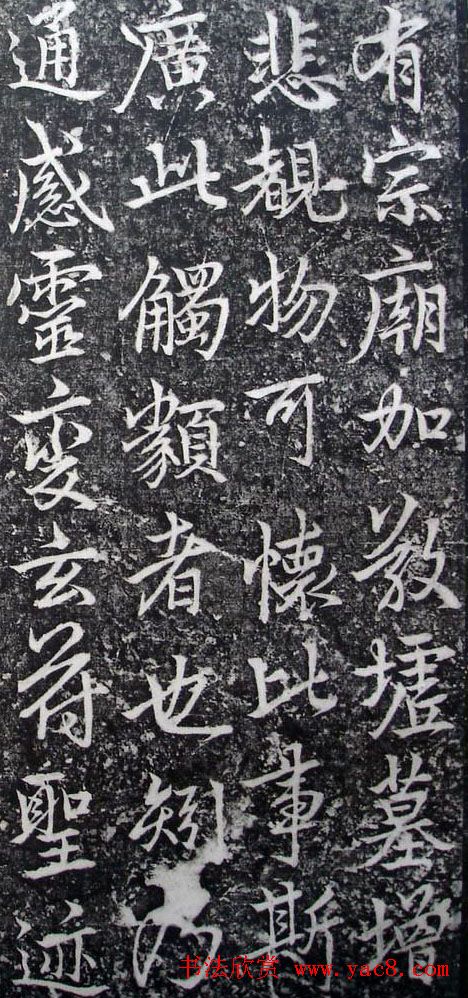 有宗廟加敬墟墓增
悲覩物可懷比事斯
廣此觸類者也矧乃
通感靈變玄符聖迹
书法欣赏 www.yac8.com